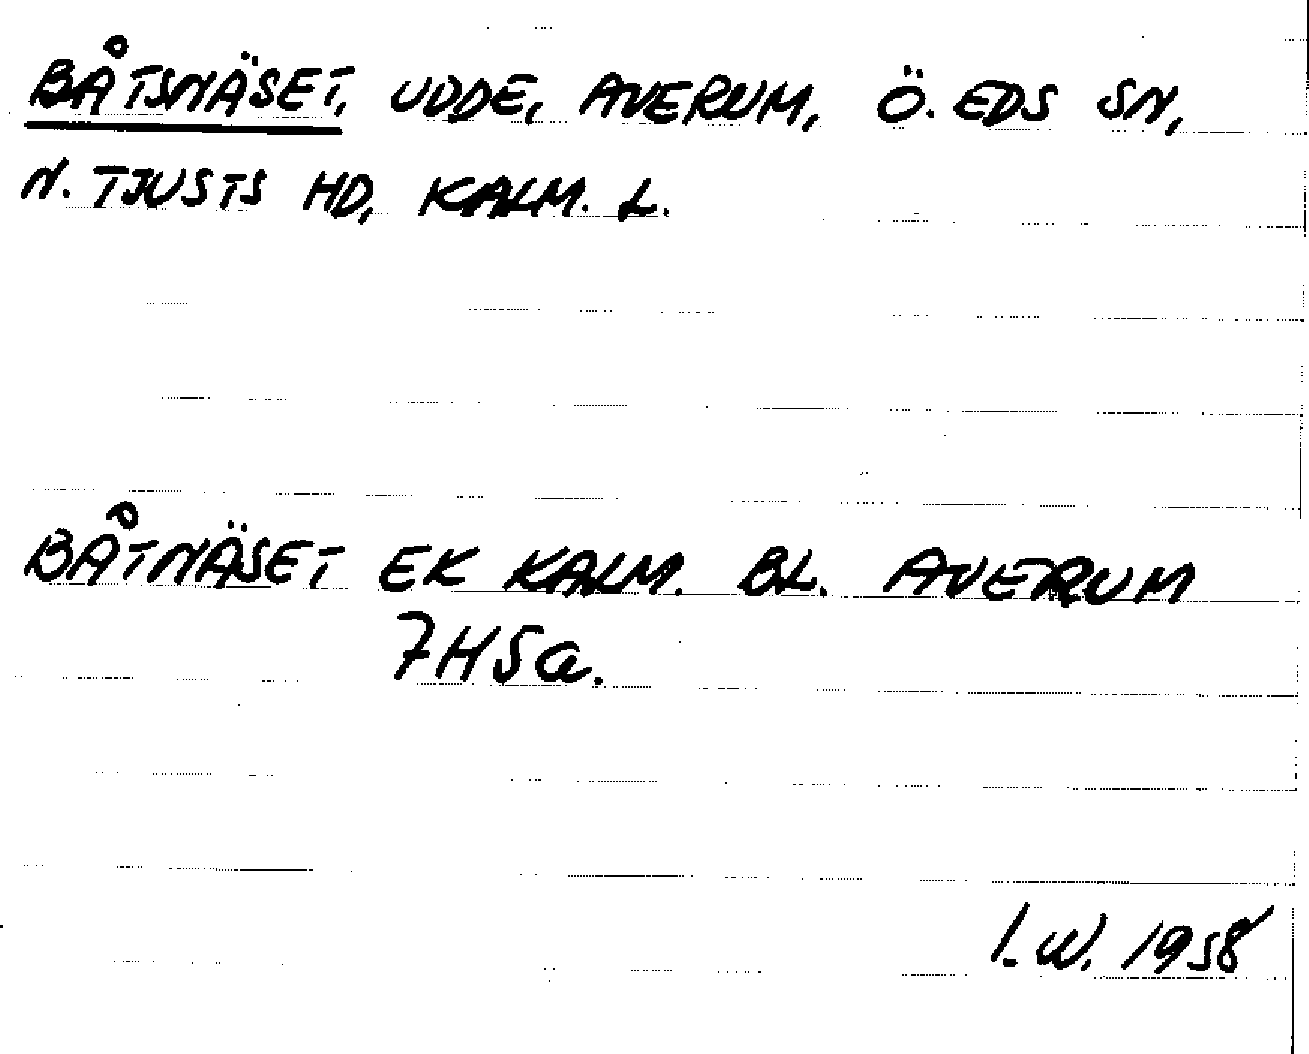 BÅTSNÄSET, UDDE, AVERUM, Ö. EDS SN,
N. TJUSTS HD, KALM. L.
BÅTNÄSET EK KALM. BL. AVERUM
7H5a.
I.W. 1958